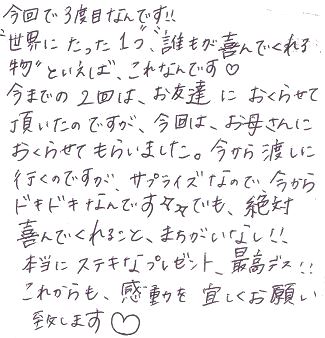 今回で3度目なんです!!
“世界にたった1つ”、誰もが喜んでくれる
物”といえば、これなんです♡
今までの2回は、お友達におくらせて
頂いたのですが、今回は、お母さんに
おくらせてもらいました。今から渡しに
行くのですが、サプライズなので今から
ドキドキなんです☆☆でも、絶対
喜んでくれること、まちがいなし!!
本当にステキなプレゼント、最高デス!!
これからも、感動を宜しくお願い
致します♡